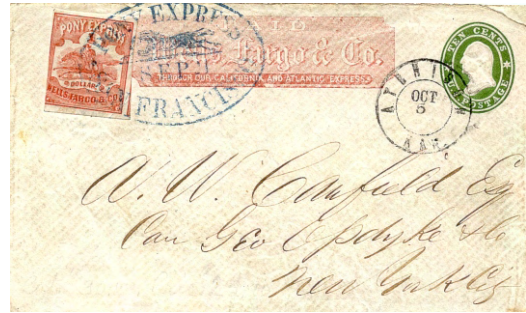 PONY EXPRESS
DOLLAR
WELLS, FARGO & CO.
PONY EXPRESS
SAN FRANCISCO
PAID
Wells, Fargo & Co.
THROUGH OUR CALIFORNIA AND ATLANTIC EXPRESS
ATCHISON
OCT
5
KAN.
TEN CENTS
U.S. POSTAGE
A. W. Canfield Esq
Care Geo Opdyke & Co
New York City